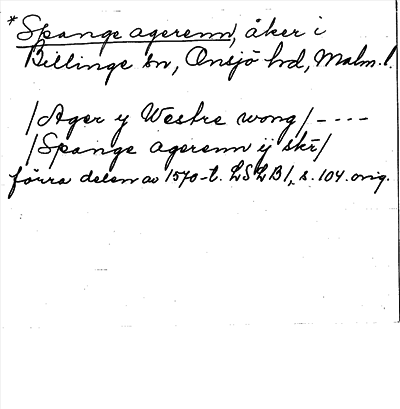 *Spange agerenn, åker i
Billinge sn, Onsjö hd, Malm. l.
/Ager y Westre wong/ - - - -
/Spange agerenn ij skr/
förra delen av 1570-t. LSLB1, s. 104. orig.